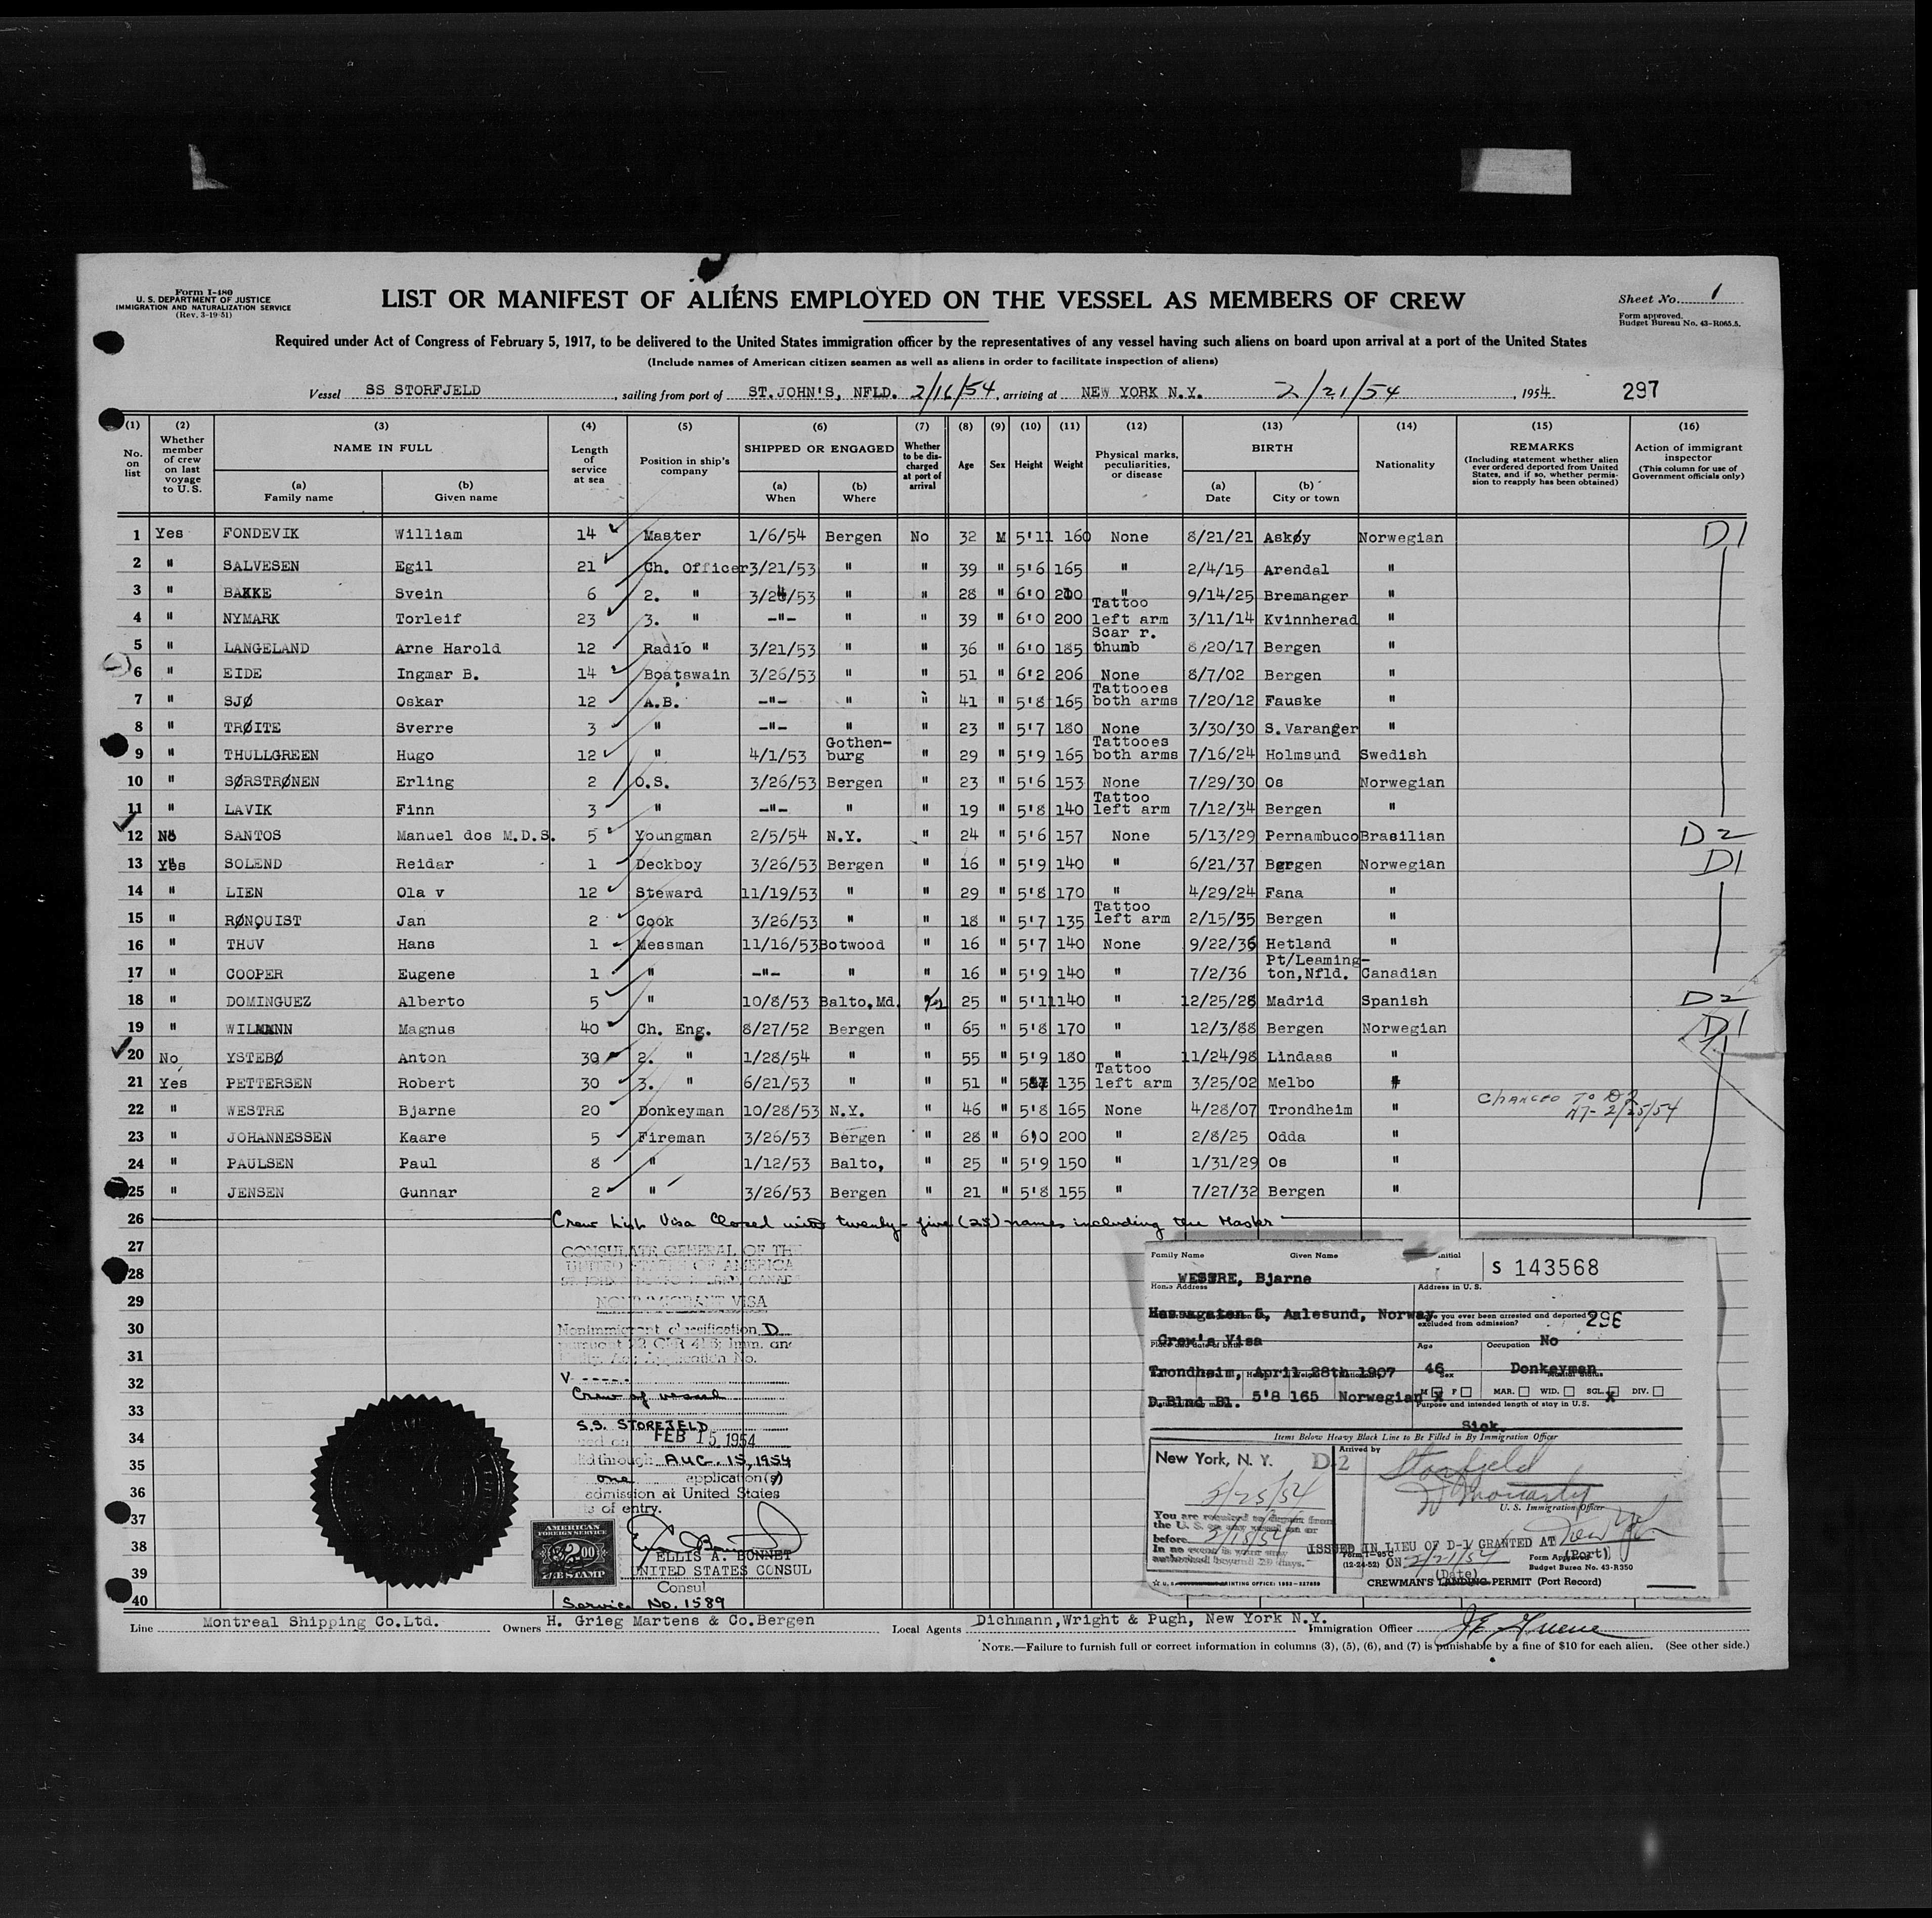 Form I-480
U. S. DEPARTMENT OF JUSTICE
IMMIGRATION AND NATURALIZATION SERVICE
(Rev. 3-19-51)
LIST OR MANIFEST OF ALIENS EMPLOYED ON THE VESSEL AS MEMBERS OF CREW
Sheet No. 1
Form approved.
Budget Bureau No. 43-R065.5.
Required under Act of Congress of February 5, 1917, to be delivered to the United States immigration officer by the representatives of any vessel having such aliens on board upon arrival at a port of the United States
(Include names of American citizen seamen as well as aliens in order to facilitate inspection of aliens)
Vessel SS STORFJELD, sailing from port of ST.JOHN'S, NFLD. 2/16/54, arriving at NEW YORK N.Y. 2/21/54, 1954 297
(1) No. on list
(2) Whether member of crew on last voyage to U.S.
(3) NAME IN FULL (a) Family name (b) Given name
(4) Length of service at sea
(5) Position in ship's company
(6) SHIPPED OR ENGAGED (a) When (b) Where
(7) Whether to be discharged at port of arrival
(8) Age
(9) Sex
(10) Height
(11) Weight
(12) Physical marks, peculiarities, or disease
(13) BIRTH (a) Date (b) City or town
(14) Nationality
(15) REMARKS (Including statement whether alien ever ordered deported from United States, and if so, whether permission to reapply has been obtained)
(16) Action of immigrant inspector (This column for use of Government officials only)
1 Yes FONDEVIK William 14 Master 1/6/54 Bergen No 32 M 5'11 160 None 8/21/21 Askøy Norwegian D1
2 " SALVESEN Egil 21 Ch. Officer 3/21/53 " " 39 " 5'6 165 " 2/4/15 Arendal "
3 " BAKKE Svein 6 2. " 3/24/53 " " 28 " 6'0 200 " 9/14/25 Bremanger "
4 " NYMARK Torleif 23 3. " -"- " " 39 " 6'0 200 Tattoo left arm 3/11/14 Kvinnherad "
5 " LANGELAND Arne Harold 12 Radio " 3/21/53 " " 36 " 6'0 185 Scar r. thumb 8/20/17 Bergen "
6 " EIDE Ingmar B. 14 Boatswain 3/26/53 " " 51 " 6'2 206 None 8/7/02 Bergen "
7 " SJØ Oskar 12 A.B. -"- " " 41 " 5'8 165 Tattooes both arms 7/20/12 Fauske "
8 " TRØITE Sverre 3 " -"- " " 23 " 5'7 180 None 3/30/30 S.Varanger "
9 " THULLGREEN Hugo 12 " 4/1/53 Gothen-burg " 29 " 5'9 165 Tattooes both arms 7/16/24 Holmsund Swedish
10 " SØRSTRØNEN Erling 2 O.S. 3/26/53 Bergen " 23 " 5'6 153 None 7/29/30 Os Norwegian
11 " LAVIK Finn 3 " -"- " " 19 " 5'8 140 Tattoo left arm 7/12/34 Bergen "
12 No SANTOS Manuel dos M.D.S. 5 Youngman 2/5/54 N.Y. " 24 " 5'6 157 None 5/13/29 Pernambuco Brasilian D2
13 Yes SOLEND Reidar 1 Deckboy 3/26/53 Bergen " 16 " 5'9 140 " 6/21/37 Bergen Norwegian D1
14 " LIEN Ola v 12 Steward 11/19/53 " " 29 " 5'8 170 " 4/29/24 Fana "
15 " RØNQUIST Jan 2 Cook 3/26/53 " " 18 " 5'7 135 Tattoo left arm 2/15/35 Bergen "
16 " THUV Hans 1 Messman 11/16/53 Botwood " 16 " 5'7 140 None 9/22/36 Hetland "
17 " COOPER Eugene 1 " -"- " " 16 " 5'9 140 " 7/2/36 Pt/Leaming-ton,Nfld. Canadian
18 " DOMINGUEZ Alberto 5 " 10/8/53 Balto,Md. 25 " 5'11 140 " 12/25/28 Madrid Spanish D2
19 " WILMANN Magnus 40 Ch. Eng. 8/27/52 Bergen " 65 " 5'8 170 " 12/3/88 Bergen Norwegian D1
20 No YSTEBØ Anton 30 2. " 1/28/54 " " 55 " 5'9 180 " 11/24/98 Lindaas "
21 Yes PETTERSEN Robert 30 3. " 6/21/53 " " 51 " 5'7 135 Tattoo left arm 3/25/02 Melbo "
22 " WESTRE Bjarne 20 Donkeyman 10/28/53 N.Y. " 46 " 5'8 165 None 4/28/07 Trondheim " CHANGED TO D2 2/25/54
23 " JOHANNESSEN Kaare 5 Fireman 3/26/53 Bergen " 28 " 6'0 200 " 2/8/25 Odda "
24 " PAULSEN Paul 8 " 1/12/53 Balto, " 25 " 5'9 150 " 1/31/29 Os "
25 " JENSEN Gunnar 2 " 3/26/53 Bergen " 21 " 5'8 155 " 7/27/32 Bergen "
26 Crew list Visa Closed with twenty-five (25) names including the Master
27
28
29
30
31
32
33
34
35
36
37
38
39
40
CONSULATE GENERAL OF THE
UNITED STATES OF AMERICA
NONIMMIGRANT VISA
Nonimmigrant classification D
V-----
Crew of vessel
S.S. STORFJELD
FEB 15 1954
through AUG. 15, 1954
one application(s)
admission at United States
of entry.
AMERICAN
FOREIGN SERVICE
$2.00
FEE STAMP
ELLIS A. BONNET
UNITED STATES CONSUL
Consul
Service No. 1589
Family Name Given Name Initial
WESTRE, Bjarne
S 143568
Home Address
Address in U. S.
Hessagaten 5, Aalesund, Norway
Have you ever been arrested and deported or excluded from admission?
296
Crew's Visa
No
Place and date of birth
Age
Occupation
Trondheim, April 28th 1907
46
Donkeyman
Sex
Marital Status
D.Blnd Bl. 5'8 165 Norwegian
M X F MAR. WID. SGL. X DIV.
Purpose and intended length of stay in U. S.
Sick.
Items Below Heavy Black Line to Be Filled in By Immigration Officer
New York, N. Y. D-2
Arrived by
Storfjeld
2/25/54
U. S. Immigration Officer
You are required to depart from
the U. S. on any vessel on or
before
In no event is your stay
authorized beyond 29 days.
ISSUED IN LIEU OF D-1 GRANTED AT New York
(Port)
ON 2/21/54
(Date)
Form I-95 C
(12-24-52)
Form Approved
Budget Bureau No. 43-R350
CREWMAN'S LANDING PERMIT (Port Record)
Line Montreal Shipping Co.Ltd. Owners H. Grieg Martens & Co.Bergen Local Agents Dichmann,Wright & Pugh, New York N.Y. Immigration Officer
NOTE.—Failure to furnish full or correct information in columns (3), (5), (6), and (7) is punishable by a fine of $10 for each alien. (See other side.)